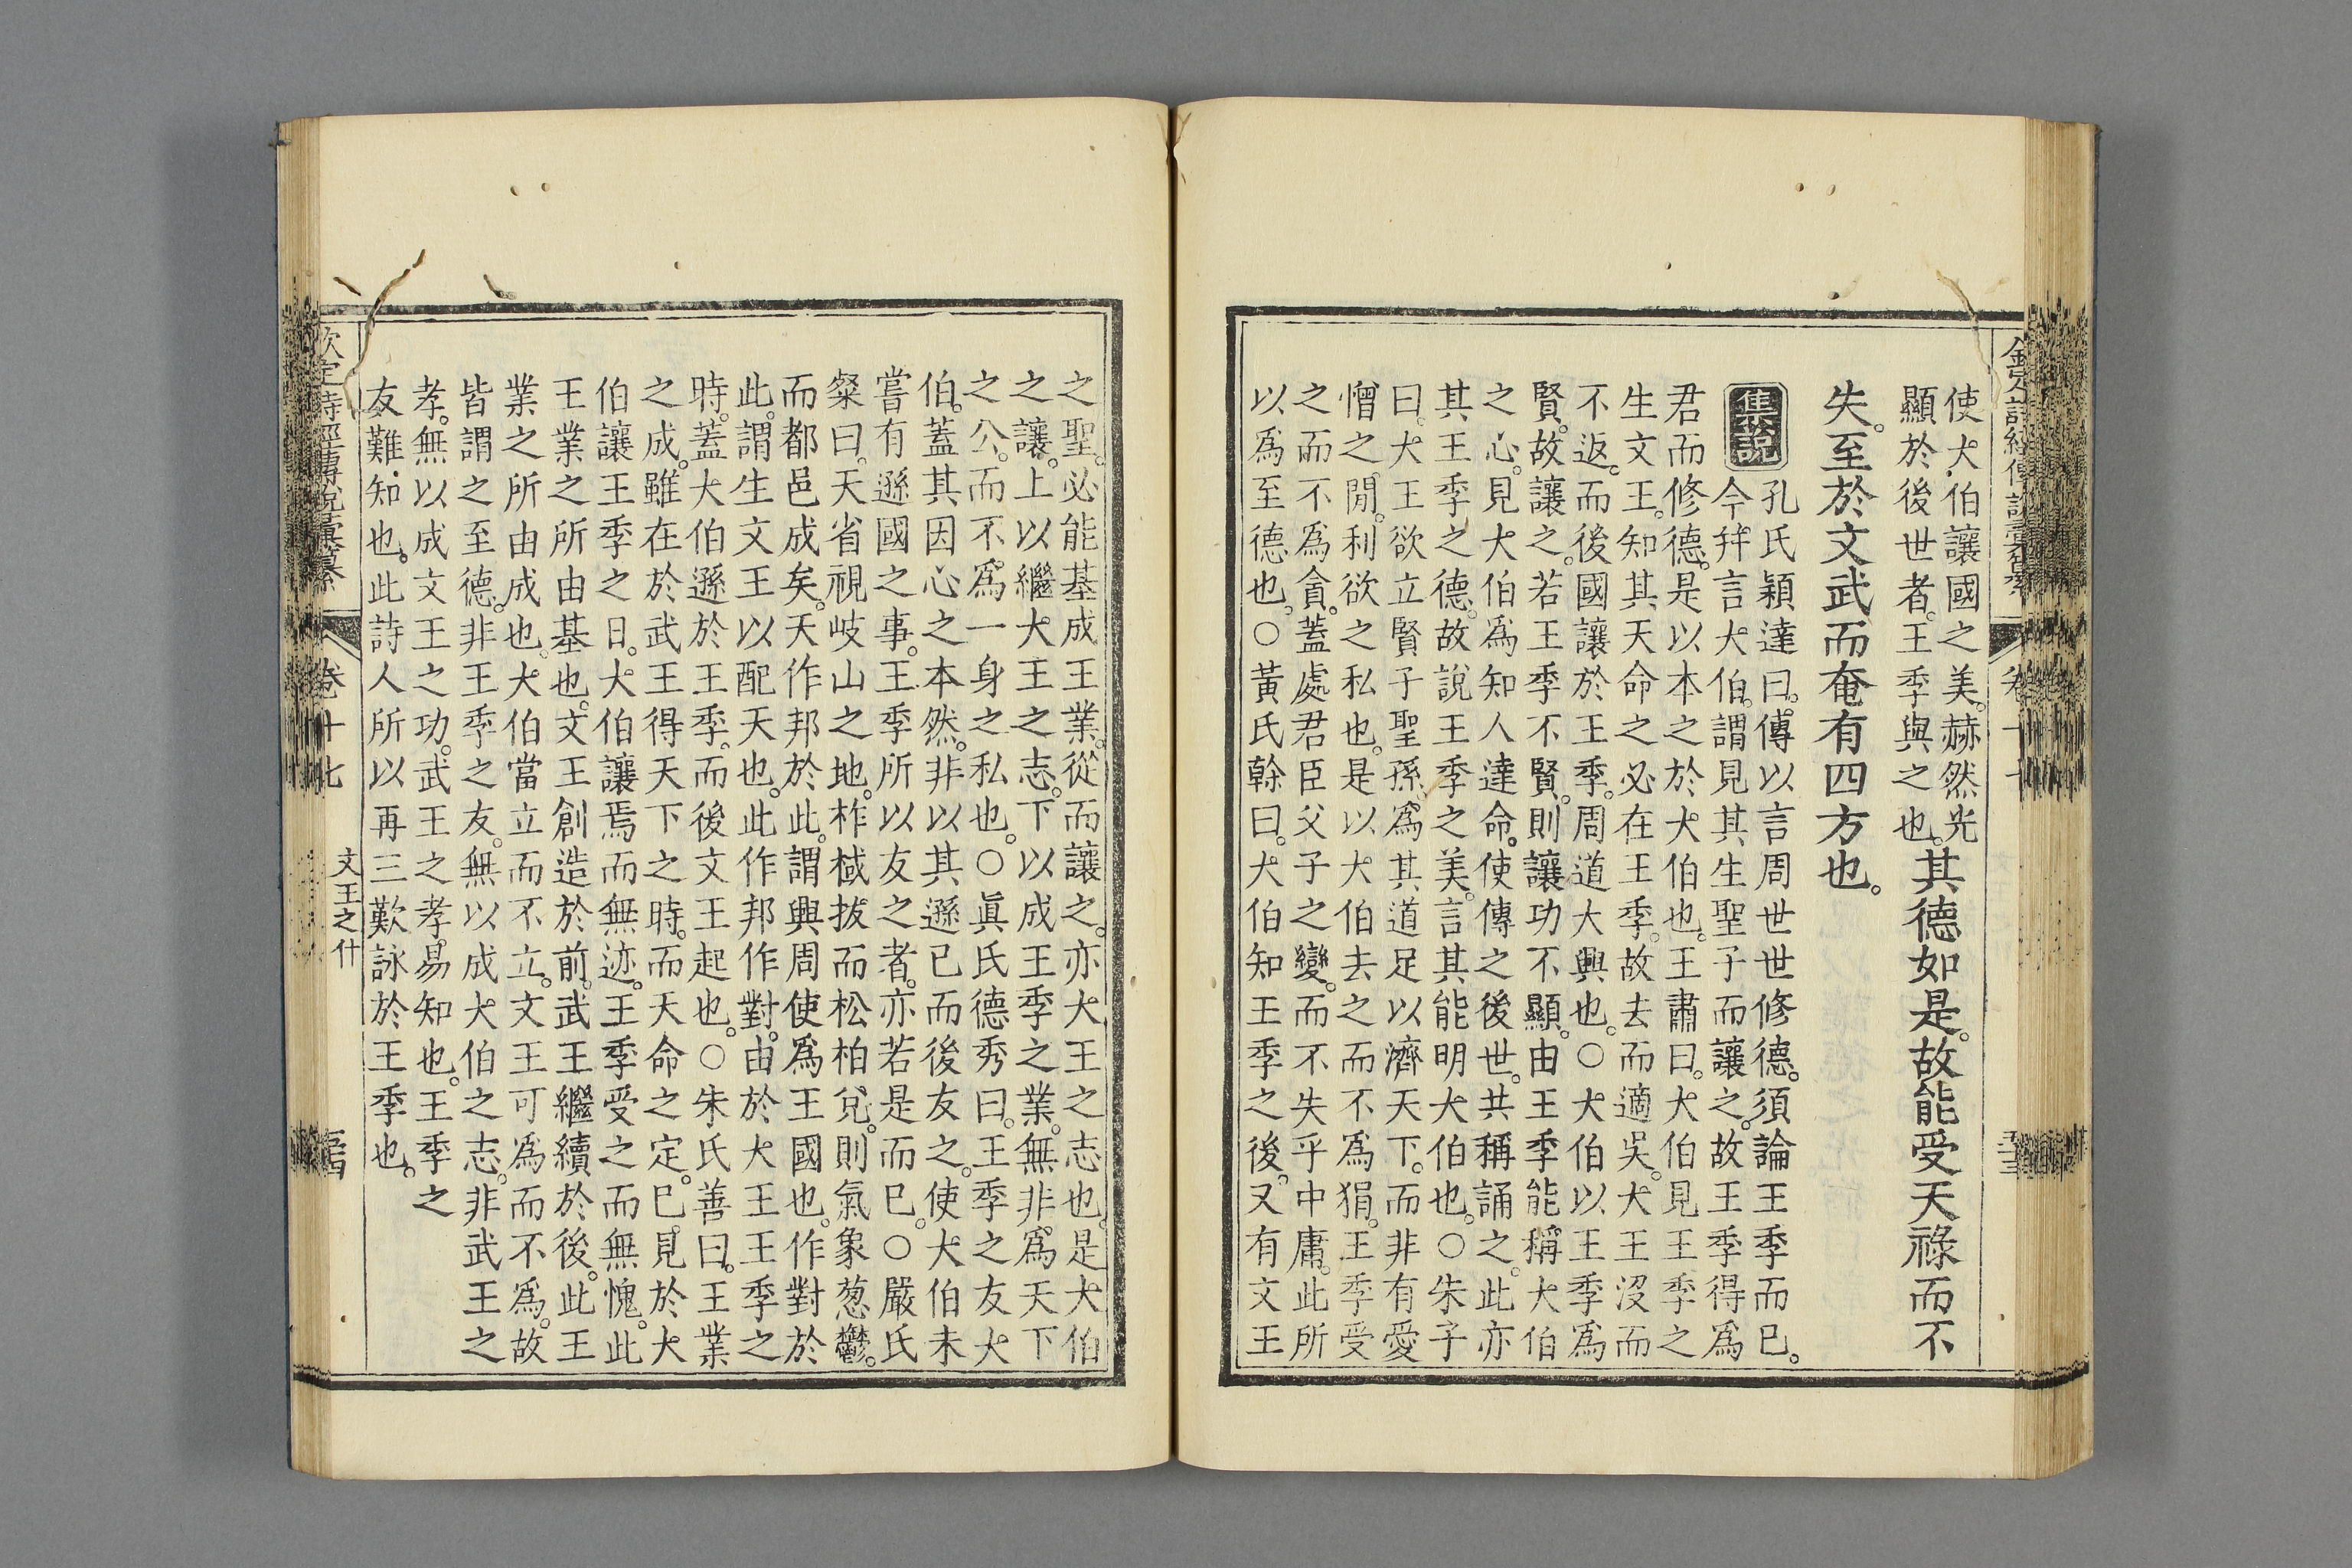 使大伯讓國之美。赫然光
顯於後世者。王季與之也。
其德如是。故能受天祿而不
失。至於文武而奄有四方也。
集說
孔氏穎達曰。傳以言周世世修德。須論王季而已。
今幷言大伯。謂見其生聖子而讓之。故王季得爲
君而修德。是以本之於大伯也。王肅曰。大伯見王季之
生文王。知其天命之必在王季。故去而適吳。大王沒而
不返。而後國讓於王季。周道大興也。○大伯以王季爲
賢。故讓之。若王季不賢。則讓功不顯。由王季能稱大伯
之心。見大伯爲知人達命。使傳之後世。共稱誦之。此亦
其王季之德。故說王季之美。言其能明大伯也。○朱子
曰。大王欲立賢子聖孫。爲其道足以濟天下。而非有愛
憎之閒。利欲之私也。是以大伯去之而不爲狷。王季受
之而不爲貪。蓋處君臣父子之變。而不失乎中庸。此所
以爲至德也。○黃氏榦曰。大伯知王季之後。又有文王
之聖。必能基成王業。從而讓之。亦大王之志也。是大伯
之讓。上以繼大王之志。下以成王季之業。無非爲天下
之公。而不爲一身之私也。○眞氏德秀曰。王季之友大
伯。蓋其因心之本然。非以其遜已而後友之。使大伯未
嘗有遜國之事。王季所以友之者。亦若是而已。○嚴氏
粲曰。天省視岐山之地。柞棫拔而松柏兌。則氣象葱鬱。
而都邑成矣。天作邦於此。謂興周使爲王國也。作對於
此。謂生文王以配天也。此作邦作對。由於大王王季之
時。蓋大伯遜於王季。而後文王起也。○朱氏善曰。王業
之成。雖在於武王得天下之時。而天命之定。已見於大
伯讓王季之日。大伯讓焉而無迹。王季受之而無愧。此
王業之所由基也。文王創造於前。武王繼續於後。此王
業之所由成也。大伯當立而不立。文王可爲而不爲。故
皆謂之至德。非王季之友。無以成大伯之志。非武王之
孝。無以成文王之功。武王之孝。易知也。王季之
友難知也。此詩人所以再三歎詠於王季也。
欽定詩經傳說彙纂 卷十七 文王之什